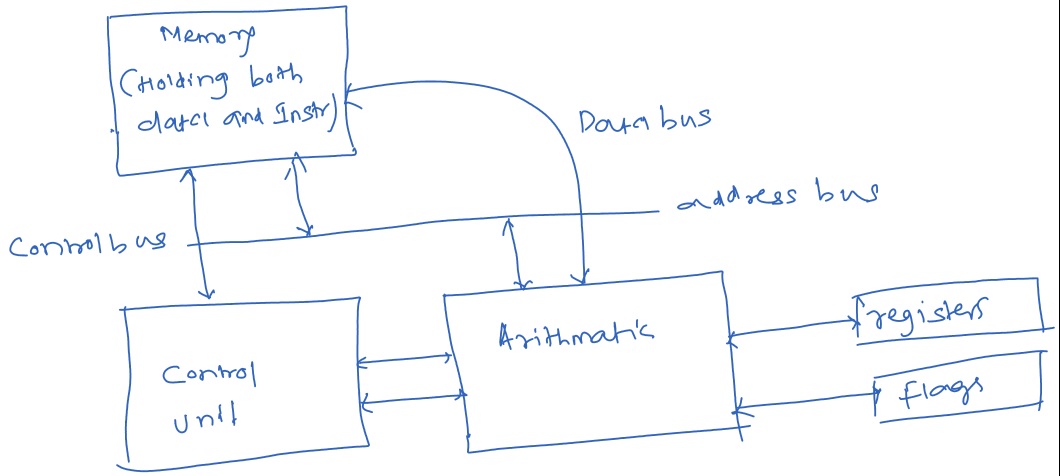 Memory
(Holding both
data and Instr)
Data bus
address bus
Control bus
Control
unit
Arithmatic
registers
flags